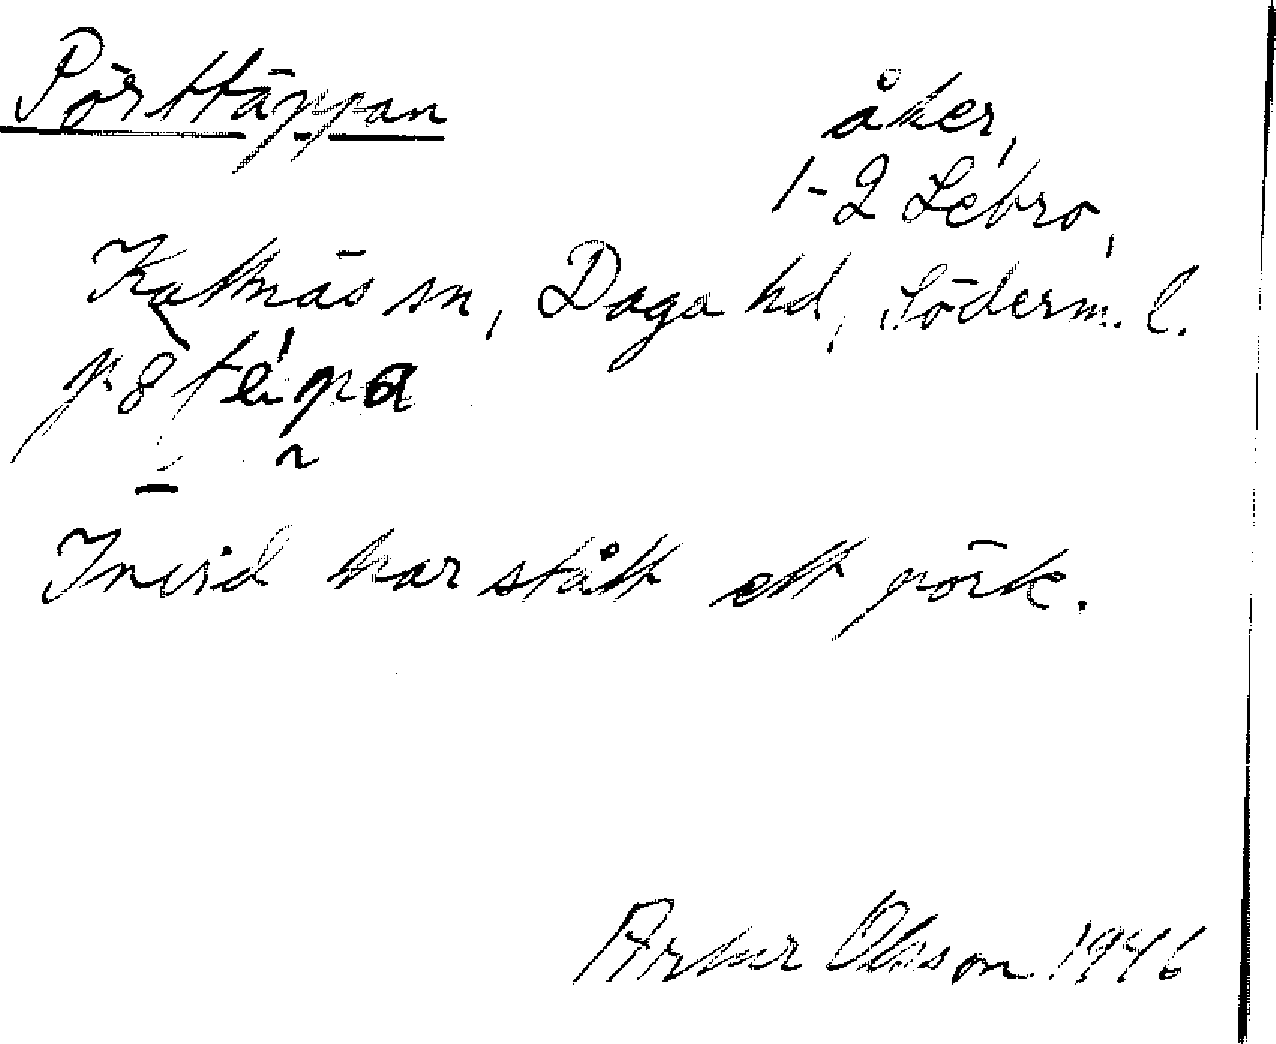 Pörttäppan
åker,
1-2 Lebro,
Kattnäs sn, Daga hd, Söderm. l.
Invid har stått ett pörk.
Artur Olsson 1946